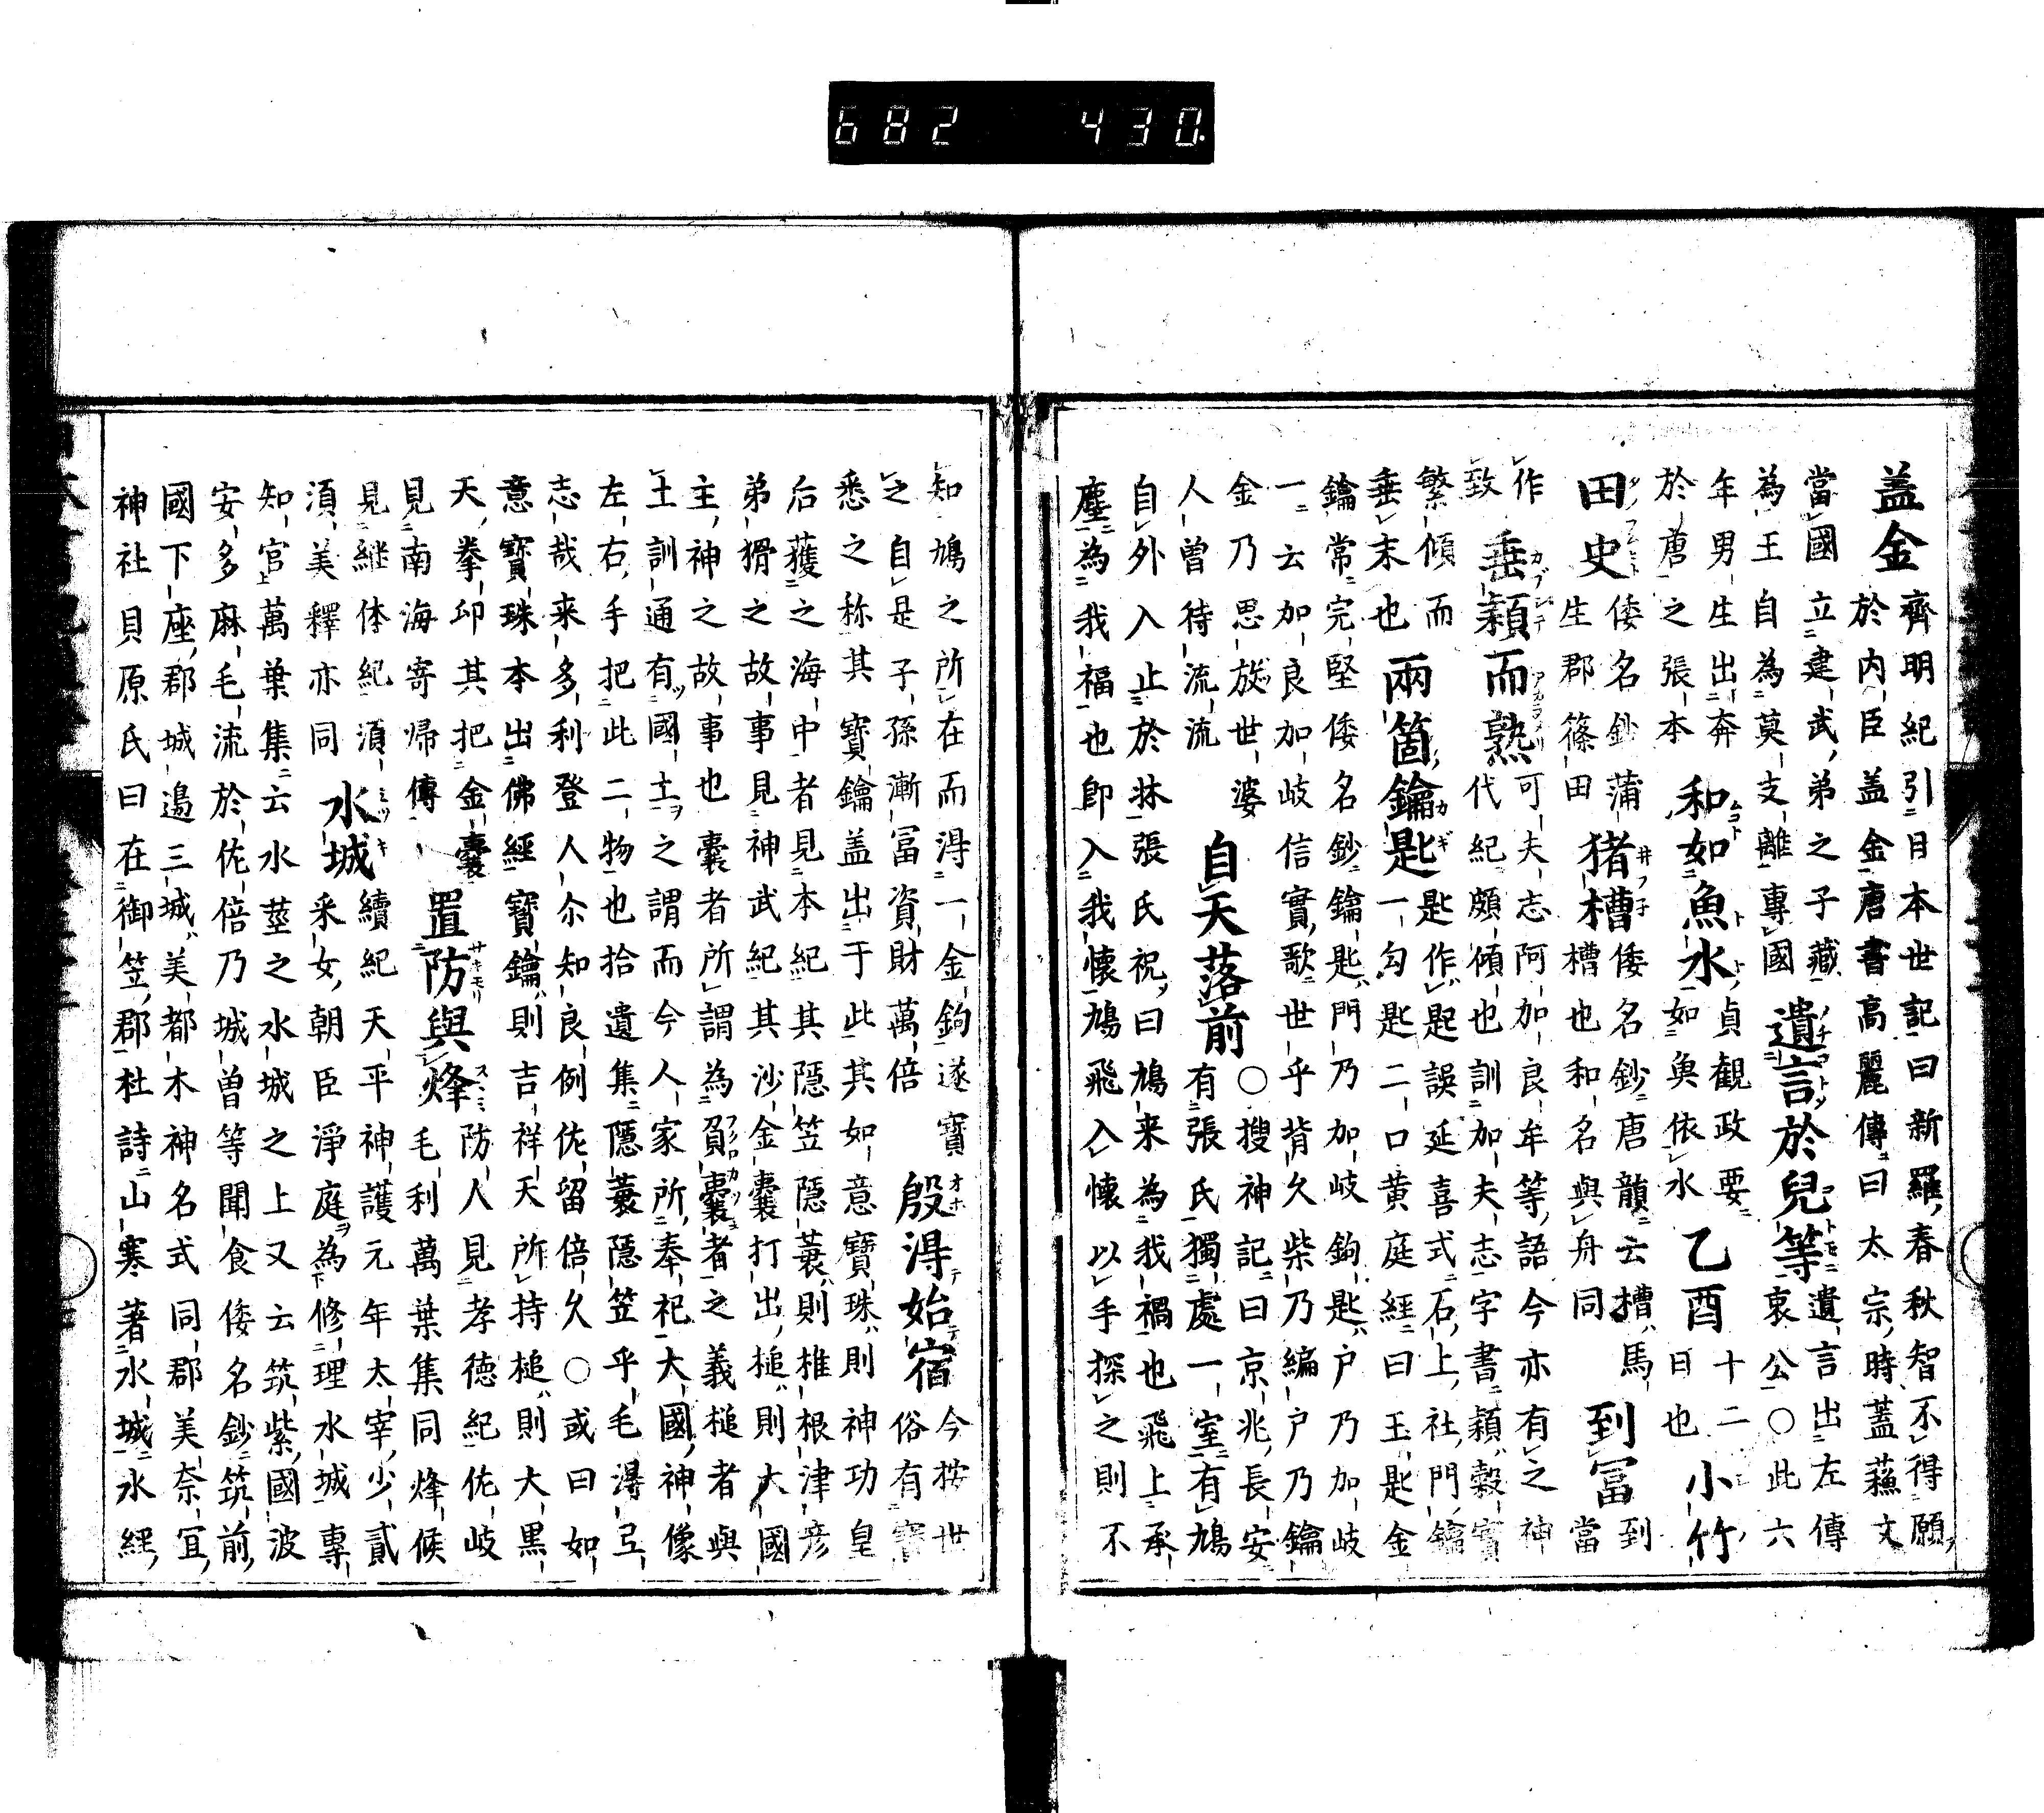 682 430
盖金齊明紀引日本世記曰新羅春秋智不得願
於内臣盖金唐書高麗傳曰太宗時蓋蘓文
當國立建武弟之子藏遺言於兒等遺言出左傳
為王自為莫支離專國哀公○此六
年男生出奔和如魚水貞觀政要乙酉十二小竹
於唐之張本如魚依水日也
田史倭名鈔蒲猪槽倭名鈔唐韻云槽馬到冨到
生郡篠田槽也和名與舟同當
作垂穎而熟可夫志阿加良牟等語今亦有之神
致代紀頗傾也訓加夫志字書穎穀實
繁傾而兩箇鑰匙匙作匙誤延喜式石上社門鑰
垂末也一勾匙二口黄庭經曰玉匙金
鑰常完堅倭名鈔鑰匙門乃加岐鉤匙戸乃加岐
一云加良加岐信實歌世乎背久柴乃編戸乃鑰
金乃思放世婆自天落前○搜神記曰京兆長安
人曾待流流有張氏獨處一室有鳩
自外入止於牀張氏祝曰鳩来為我禍也飛上承
塵為我福也即入我懷鳩飛入懷以手探之則不
知鳩之所在而淂一金鉤遂寳殷淂始宿今按世
之自是子孫漸冨資財萬倍俗有寳
悉之称其寳鑰盖出于此其如意寳珠則神功皇
后獲之海中者見本紀其隱笠隱蓑則椎根津彦
弟猾之故事見神武紀其沙金嚢打出槌則大國
主神之故事也嚢者所謂為負嚢者之義槌者與
土訓通有國土之謂而今人家所奉祀大國神像
左右手把此二物也拾遺集隱蓑隱笠乎毛淂弖
志哉来多利登人尓知良例佐留倍久○或曰如
意寳珠本出佛經寳鑰則吉祥天所持槌則大黒
天拳印其把金嚢置防與烽防人見孝德紀佐岐
見南海寄帰傳毛利萬葉集同烽候
見継体紀湏水城續紀天平神護元年太宰少貳
湏美釋亦同采女朝臣淨庭為修理水城專
知官萬葉集云水莖之水城之上又云筑紫國波
安多麻毛流於佐倍乃城曽等聞食倭名鈔筑前
國下座郡城邉三城美都木神名式同郡美奈冝
神社貝原氏曰在御笠郡杜詩山寒著水城水經